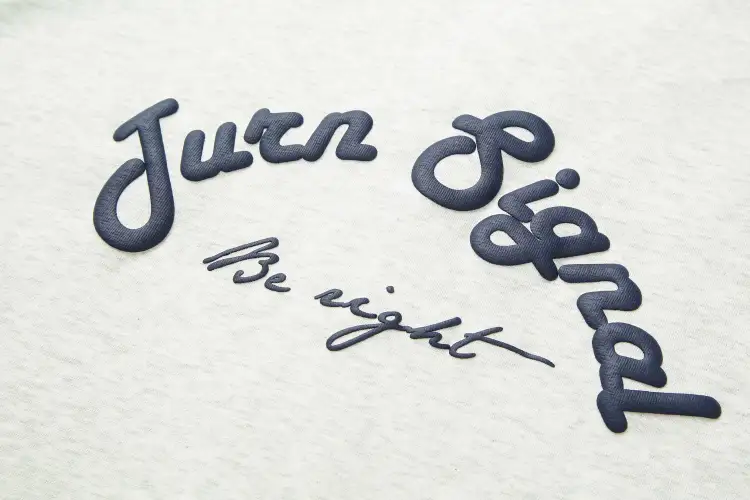 Turn Signal
Be right